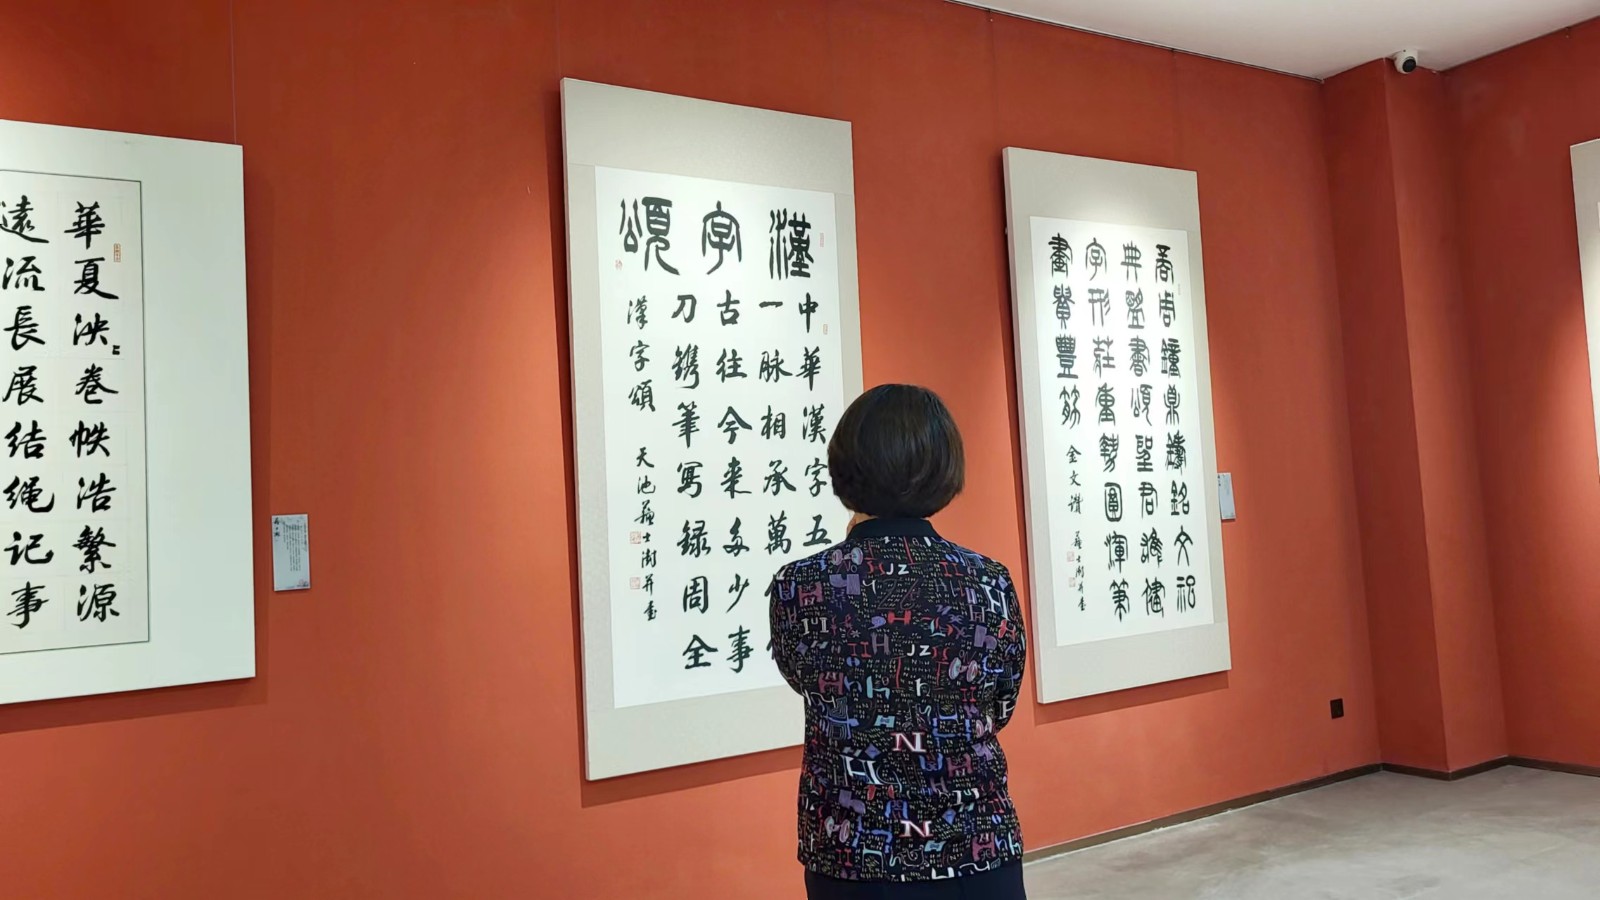 華夏泱〻卷帙浩繁源
遠流長展结绳记事
漢字頌
中華漢字五
一脉相承萬
古往今来多少事
刀鐫筆寫録周全
漢字頌 天池蘇士澍并書
商周鐘鼎鑄銘文祀
典盟書頌聖君雄健
字形莊重勢圓渾筆
畫貴豐筋
金文讚 蘇士澍并書
JZ
JZ
N
H
N